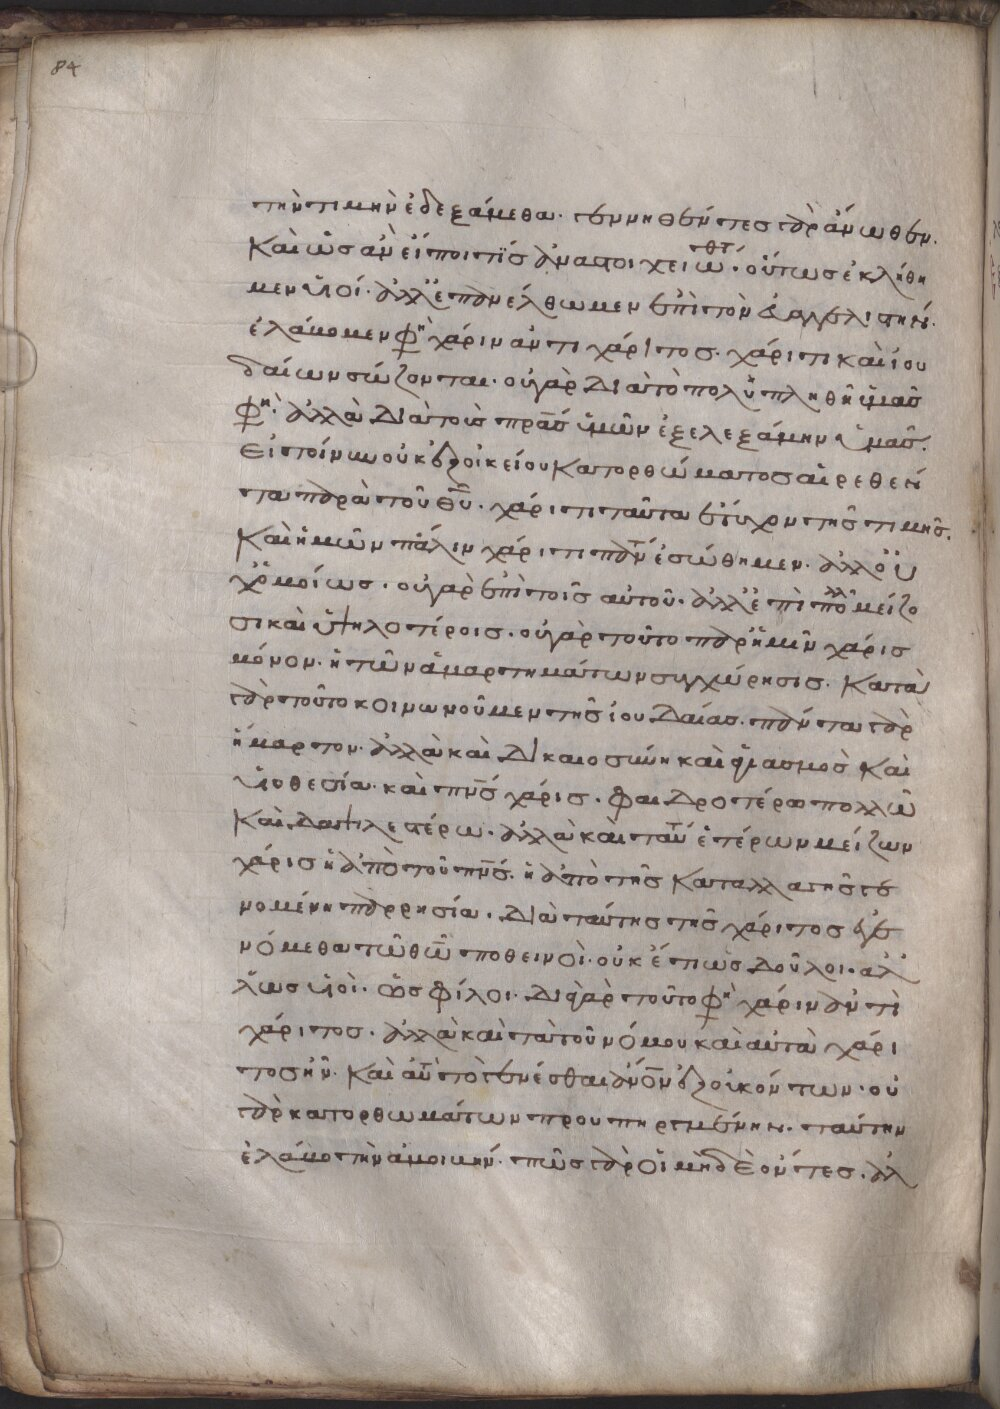 84
τὴν τιμὴν ἐδεξάμεθα. γεννηθέντες γὰρ ἄνωθεν.
καὶ ὡς ἂν εἴποι τίς ἀναστοιχειωθέντ(ες). οὕτως ἐκλήθη
μεν υἱοί. ἀλλ' ἐπανέλθωμεν ἐπὶ τὸν εὐαγγελιστήν.
ἐλάβομεν φη(σὶ) χάριν ἀντι χάριτος. χάριτι καὶ ἰου
δαίων σώζονται. οὐ γὰρ διὰ τὸ πολυπληθῆ ὑμᾶς
φη(σὶ). ἀλλὰ διὰ τοὺς πρ̅α̅ς ὑμῶν ἐξελεξάμην ὑμᾶς.
εἰ τοίνυν οὐκ ἐξ οἰκείου κατορθώματος αἱρεθέν
τα παρὰ τοῦ θυ̅. χάριτι ταῦτα ἔτυχον τῆς τιμῆς.
καὶ ἡμῶν πάλιν χάριτι πάντ(ες) ἐσώθημεν. ἀλλ' οὐ
χ' ὁμοίως. οὐ γὰρ ἐπὶ τοῖς αὐτοῦ. ἀλλ' ἐπὶ πολλῶ μείζο
σι καὶ ὑψηλοτέροις. οὐ γὰρ τοῦτο παρ' ἡμῖν χάρις
μόνον. ἡ τῶν ἁμαρτημάτων συγχώρησις. κατὰ
γὰρ τοῦτο κοινωνοῦμεν τῆς ἰουδαίας. πάντα γὰρ
ἥμαρτον. ἀλλὰ καὶ δικαιοσύνη καὶ ἁγιασμὸς καὶ
υἱοθεσία. καὶ πν̅ς χάρις. φαιδροτέρα πολλῶ
καὶ δαψιλεστέρω. ἀλλὰ καὶ τούτ(ων) ἑτέρων μείζων
χάρις ἡ ἀπὸ τοῦ πν̅ς. ἡ ἀπὸ τῆς καταλλαγῆς γε
νομένη παρρησία. διὰ ταύτης τῆς χάριτος ἐγε
νόμεθα τῶ θω̅ ποθεινοί. οὐκ ἔτι ὡς δοῦλοι. ἀλ'
λ' ὡς υἱοὶ. ὡς φίλοι. διὰ γὰρ τοῦτο φη(σὶ) χάριν ἀντὶ
χάριτος. ἀλλὰ καὶ τὰ τοῦ νόμου καὶ αὐτὰ χάρι
τος ἦν. καὶ αὐτ(ὸ) τὸ γενέσθαι ἀν̅ο̅ν ἐξ οὐκ όντων. οὐ
γὰρ κατορθωμάτων προυπηργμένων. ταύτην
ἐλάβο τὴν ἀμοιβήν. πῶς γὰρ οἱ μηδὲ ὄντες. ἀλ